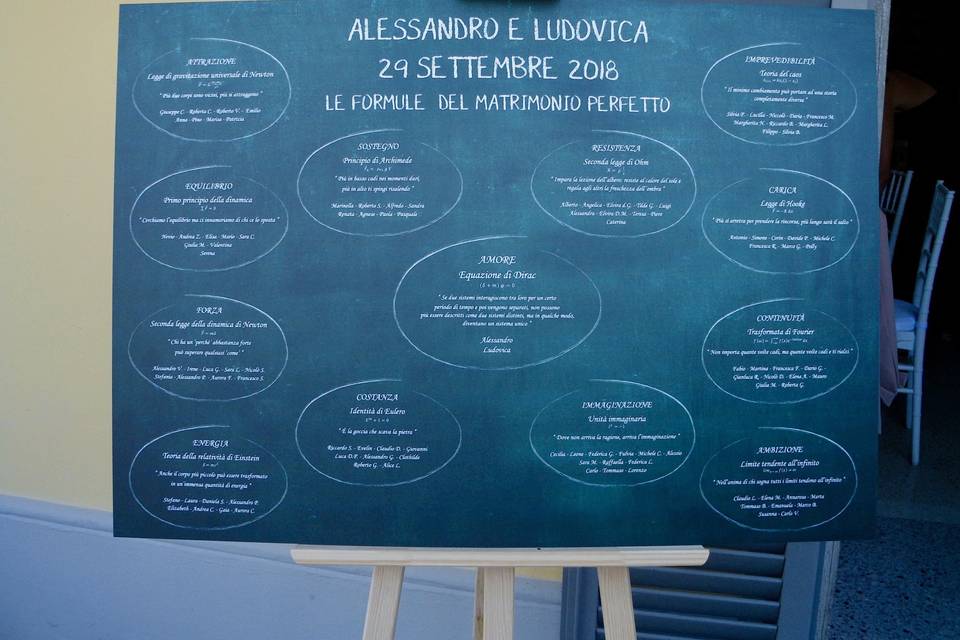 ALESSANDRO E LUDOVICA
29 SETTEMBRE 2018
LE FORMULE DEL MATRIMONIO PERFETTO
ATTRAZIONE
Legge di gravitazione universale di Newton
" Più due corpi sono vicini, più si attraggono "
Giuseppe C. - Roberta C. - Roberto V. - Emilio
Anna - Pino - Marisa - Patrizia
IMPREVEDIBILITÀ
Teoria del caos
" Il minimo cambiamento può portare ad una storia
completamente diversa "
Silvia F. - Lucilla - Niccolò - Daria - Francesco M.
Margherita N. - Riccardo B. - Margherita L.
Filippo - Silvia B.
SOSTEGNO
Principio di Archimede
" Più in basso cadi nei momenti duri,
più in alto ti spingi risalendo "
Marinella - Roberta S. - Alfredo - Sandra
Renata - Agnese - Paola - Pasquale
RESISTENZA
Seconda legge di Ohm
" Impara la lezione dell'albero: resiste al calore del sole e
regala agli altri la freschezza dell'ombra "
Alberto - Angelica - Elvira d.G. - Tilde G. - Luigi
Alessandra - Elvira D.M. - Teresa - Piero
Caterina
EQUILIBRIO
Primo principio della dinamica
" Cerchiamo l'equilibrio ma ci innamoriamo di chi ce lo sposta "
Nevio - Andrea Z. - Elisa - Mario - Sara C.
Giulia M. - Valentina
Serena
CARICA
Legge di Hooke
F = -k Δx
" Più si arretra per prendere la rincorsa, più lungo sarà il salto "
Antonio - Simone - Corin - Davide P. - Michele C.
Francesca R. - Marco G. - Polly
AMORE
Equazione di Dirac
(∂ + m) ψ = 0
" Se due sistemi interagiscono tra loro per un certo
periodo di tempo e poi vengono separati, non possono
più essere descritti come due sistemi distinti, ma in qualche modo,
diventano un sistema unico "
Alessandro
Ludovica
FORZA
Seconda legge della dinamica di Newton
F = ma
" Chi ha un 'perché' abbastanza forte
può superare qualsiasi 'come' "
Alessandro V. - Irene - Luca G. - Sara L. - Nicolò S.
Stefania - Alessandro P. - Aurora F. - Francesco S.
CONTINUITÀ
Trasformata di Fourier
" Non importa quante volte cadi, ma quante volte cadi e ti rialzi "
Fabio - Martina - Francesca F. - Dario G.
Gianluca R. - Nicolò D. - Elena A. - Mauro
Giulia M. - Roberta G.
COSTANZA
Identità di Eulero
" È la goccia che scava la pietra "
Riccardo S. - Evelin - Claudio D. - Giovanni
Luca D.P. - Alessandro G. - Clotilde
Roberto G. - Alice L.
IMMAGINAZIONE
Unità immaginaria
i² = -1
" Dove non arriva la ragione, arriva l'immaginazione "
Cecilia - Leone - Federica G. - Fulvia - Michele C. - Alessio
Sara M. - Raffaella - Federica L.
Carlo - Tommaso - Lorenzo
ENERGIA
Teoria della relatività di Einstein
E = mc²
" Anche il corpo più piccolo può essere trasformato
in un'immensa quantità di energia "
Stefano - Laura - Daniela S. - Alessandro P.
Elizabeth - Andrea C. - Gaia - Aurora C.
AMBIZIONE
Limite tendente all'infinito
" Nell'anima di chi sogna tutti i limiti tendono all'infinito "
Claudio L. - Elena M. - Annarosa - Marta
Tommaso B. - Emanuele - Marco B.
Susanna - Carlo V.